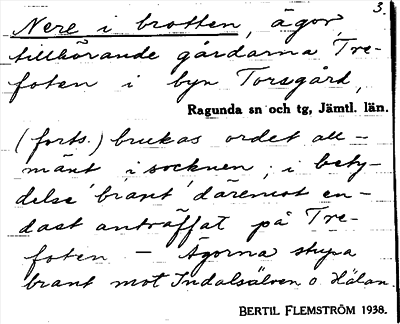 3.
Nere i brotten, ägor,
tillhörande gårdarna Tre-
foten i byn Torsgård,
Ragunda sn och tg, Jämtl. län.
(forts.) brukas ordet all-
mänt i socknen; i bety-
delse 'brant' däremot en-
dast anträffat på Tre-
foten — Ägorna stupa
brant mot Indalsälven o. Hälan.
BERTIL FLEMSTRÖM 1938.